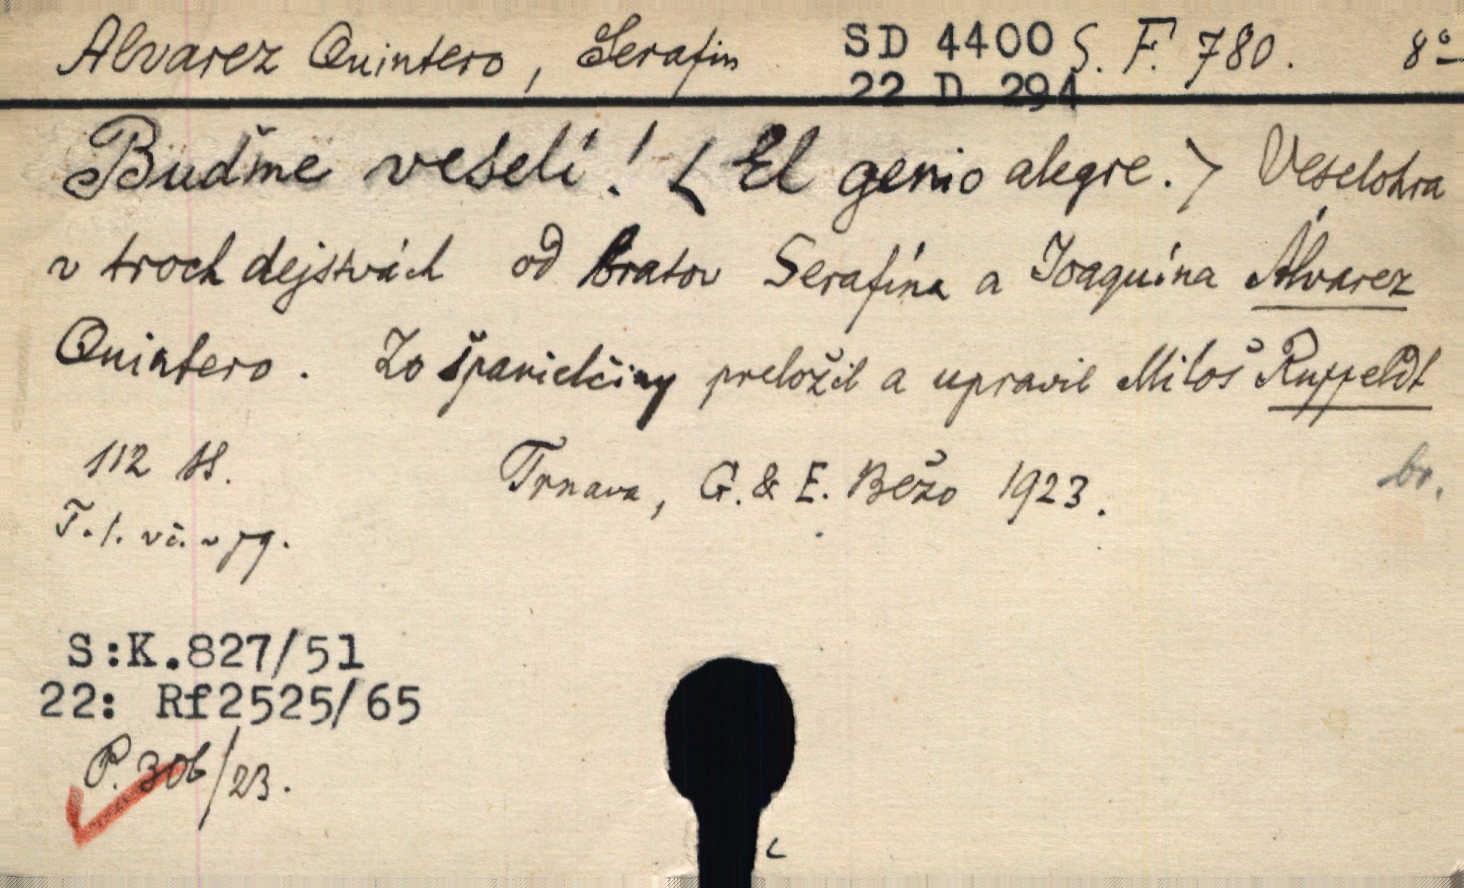 Alvarez Quintero, Serafin SD 4400 S. F. 780. 8°
22 D 294
Buďme veselí! < El genio alegre. > Veselohra
v troch dejstvách od bratov Serafína a Joaquína Álvarez
Quintero. Zo španielčiny preložil a upravil Miloš Ruppeldt
112 ss. Trnava, G. & E. Bežo 1923. br.
S:K.827/51
22: Rf2525/65
P. 306/23.